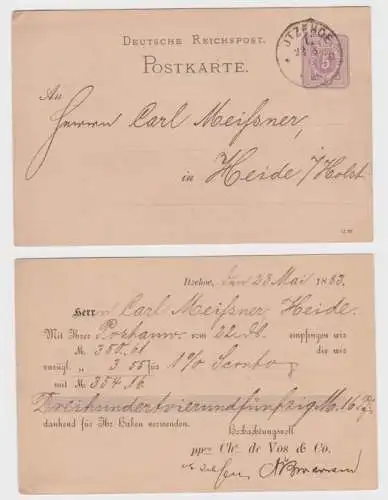 DEUTSCHE REICHSPOST.
POSTKARTE.
ITZEHOE
5
An
Herrn Carl Meißner,
in Heide i/Holst.
Itzehoe, den 23 Mai 1883.
Herrn Carl Meißner, Heide.
Mit Ihrer Postanw. vom 22. ds. empfingen wir
M. 350.61 die wir
zuzügl. „ 3.55 für 1% Sconto
mit M. 354.16.
Dreihundertvierundfünfzig M. 16 Pf.
dankend für Ihr Haben verwenden.
Hochachtungsvoll
ppra Chs. de Vos & Co.